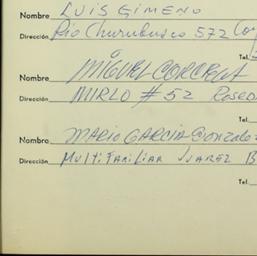 Nombre LUIS GIMENO
Dirección Rio Churubusco 572
Tel.
Nombre MIGUEL CORCEGA
Dirección MIRLO # 52
Tel.
Nombre MARIO GARCIA Gonzalez
Dirección MULTIFAMILIAR JUAREZ
Tel.